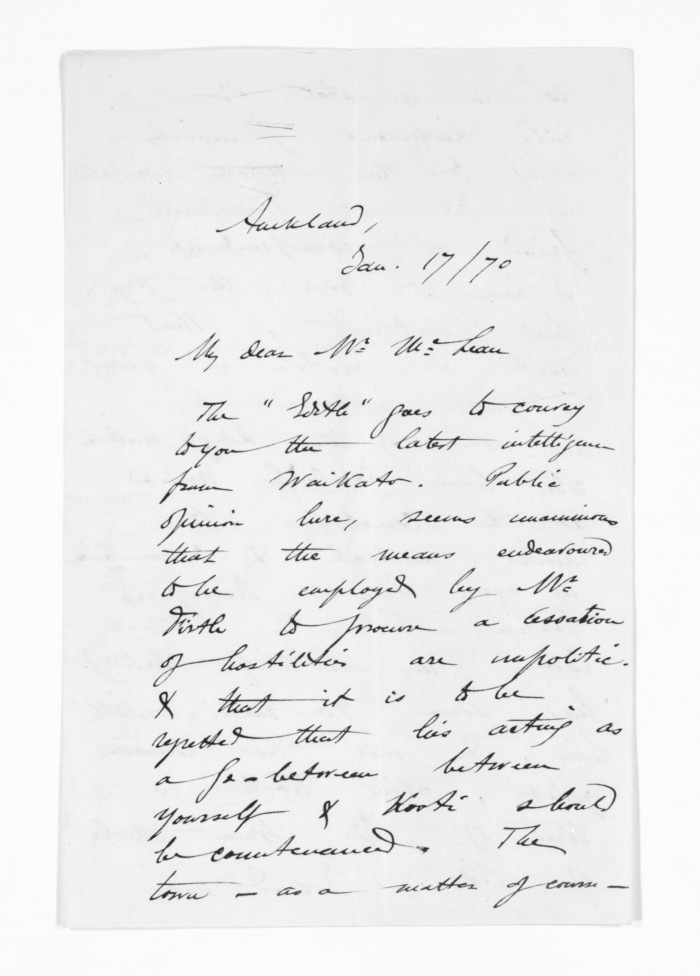 Auckland,
Jan. 17/70
My dear Mr. McLean
The "Edith" goes to convey
to you the latest intelligence
from Waikato. Public
opinion here, seems unanimous
that the means endeavoured
to be employed by Mr.
Firth to procure a cessation
of hostilities are impolitic.
& that it is to be
regretted that his acting as
a go-between between
yourself & Kooti should
be countenanced. The
town - as a matter of course -